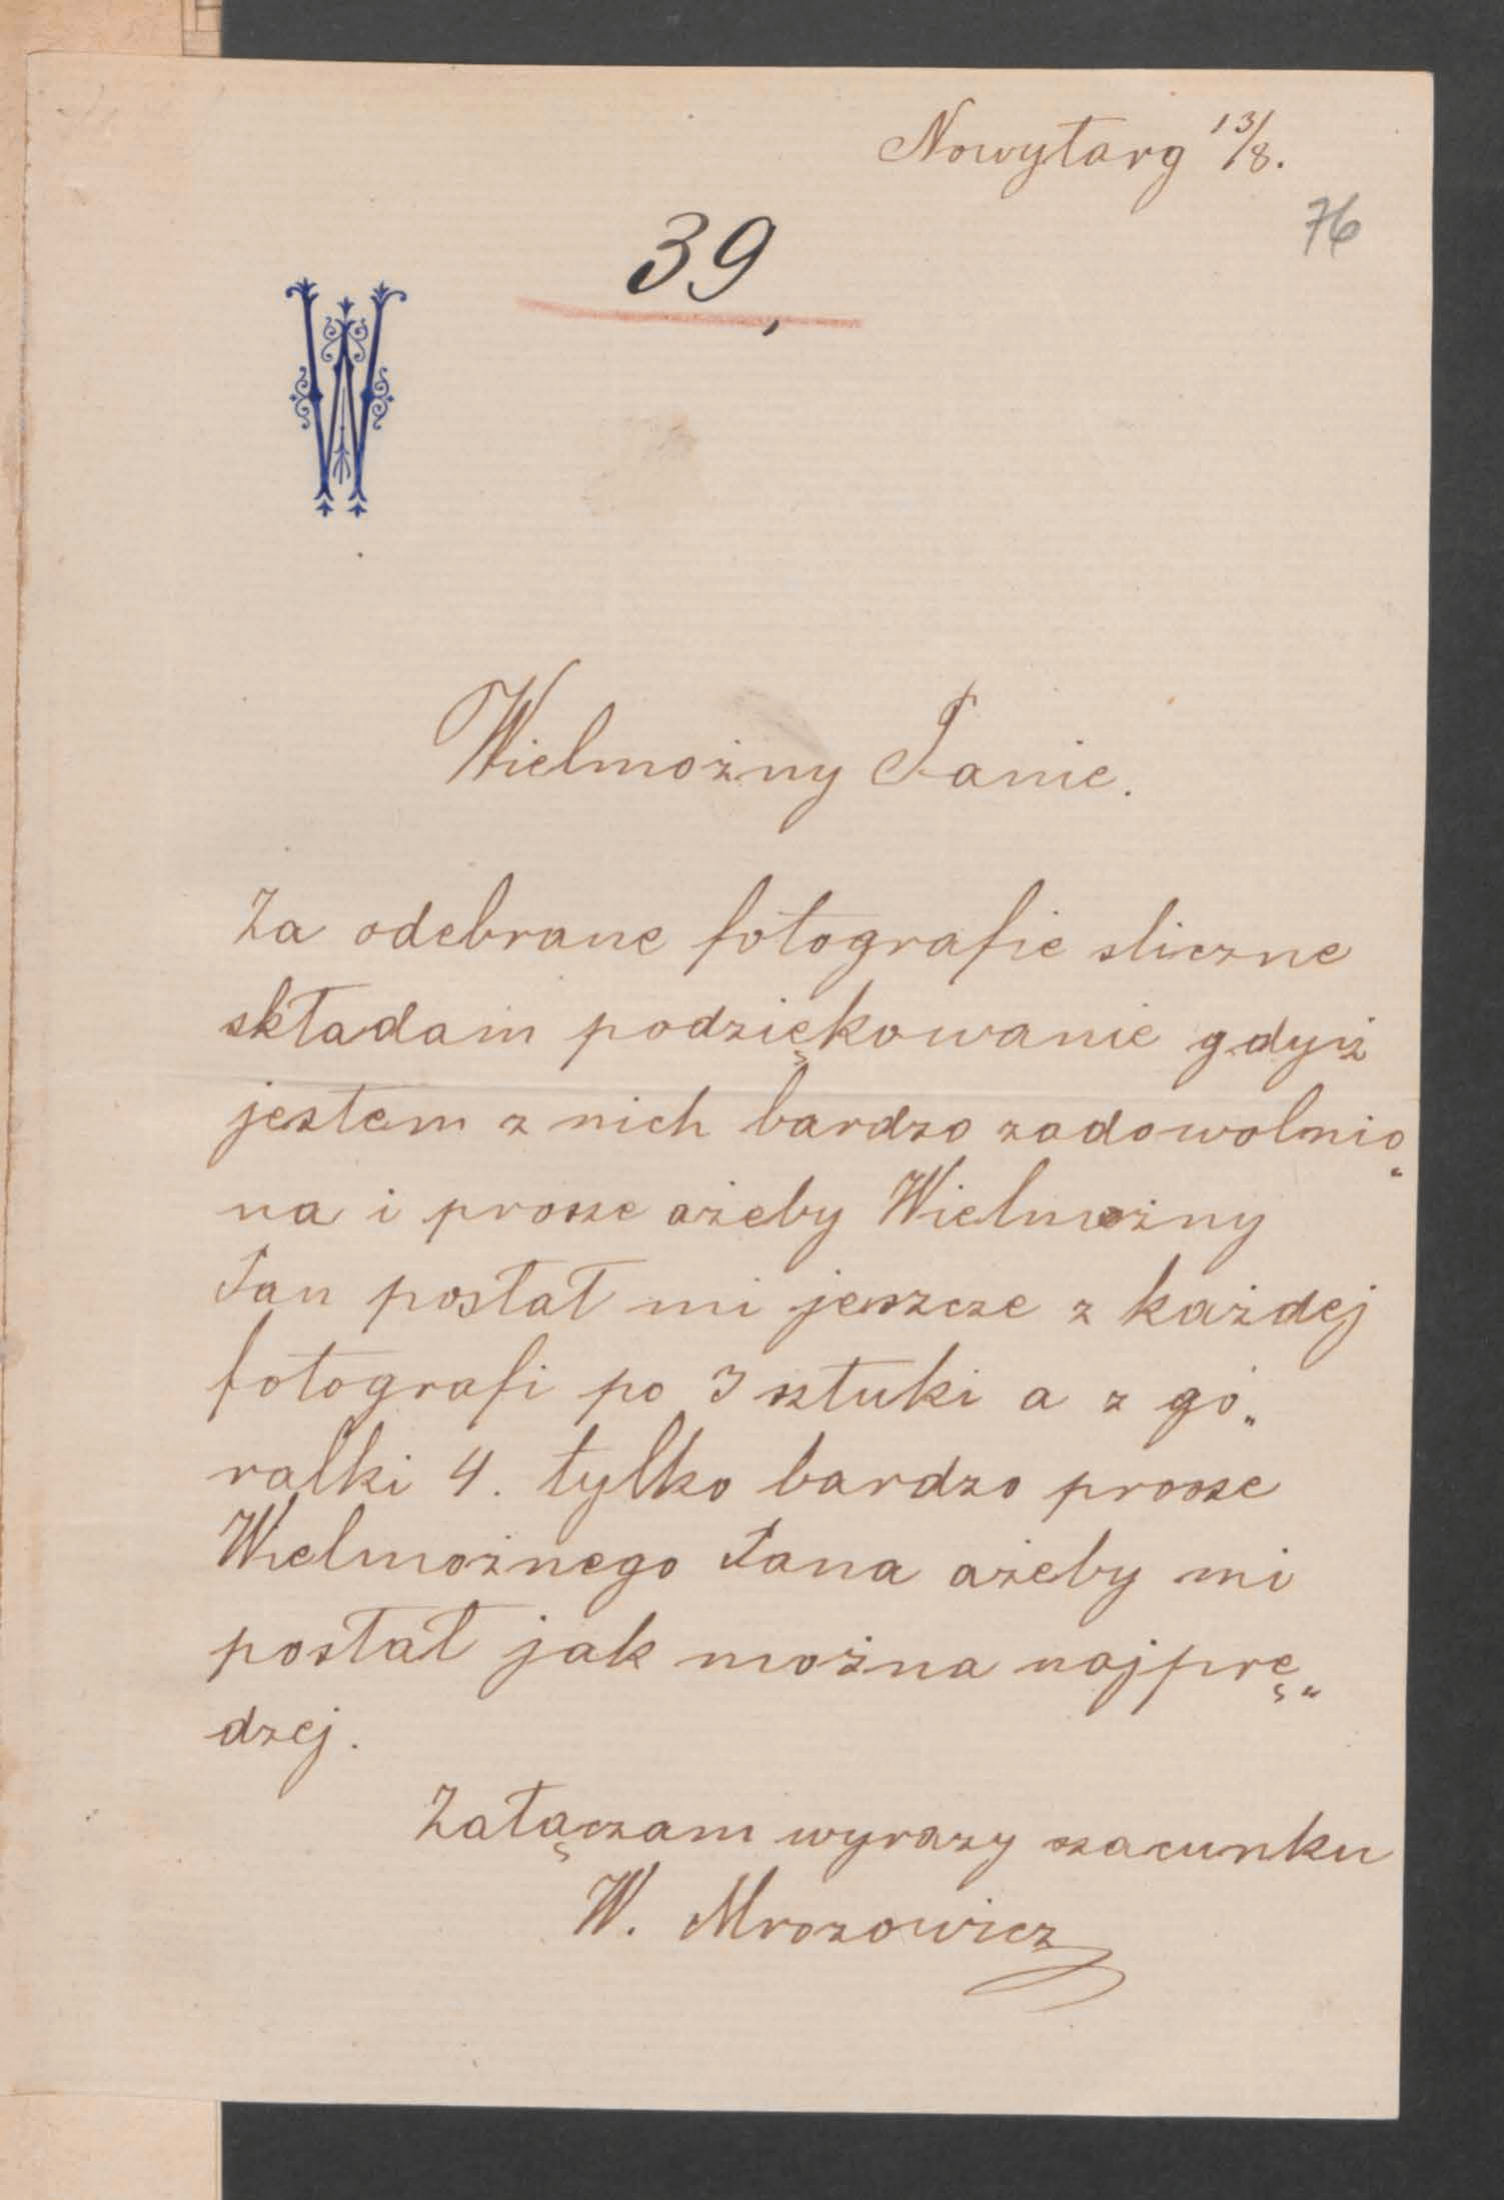 Nowytarg 13/8.
76
39,
W
Wielmożny Panie.
Za odebrane fotografie sliczne
składam podziękowanie gdyż
jestem z nich bardzo zadowolnio„
na i prosze ażeby Wielmożny
Pan posłał mi jeszcze z każdej
fotografi po 3 sztuki a z gó„
ralki 4. tylko bardzo prosze
Wielmożnego Pana ażeby mi
posłał jak można najprę„
dzej.
Załączam wyrazy szacunku
W. Mrozowicz